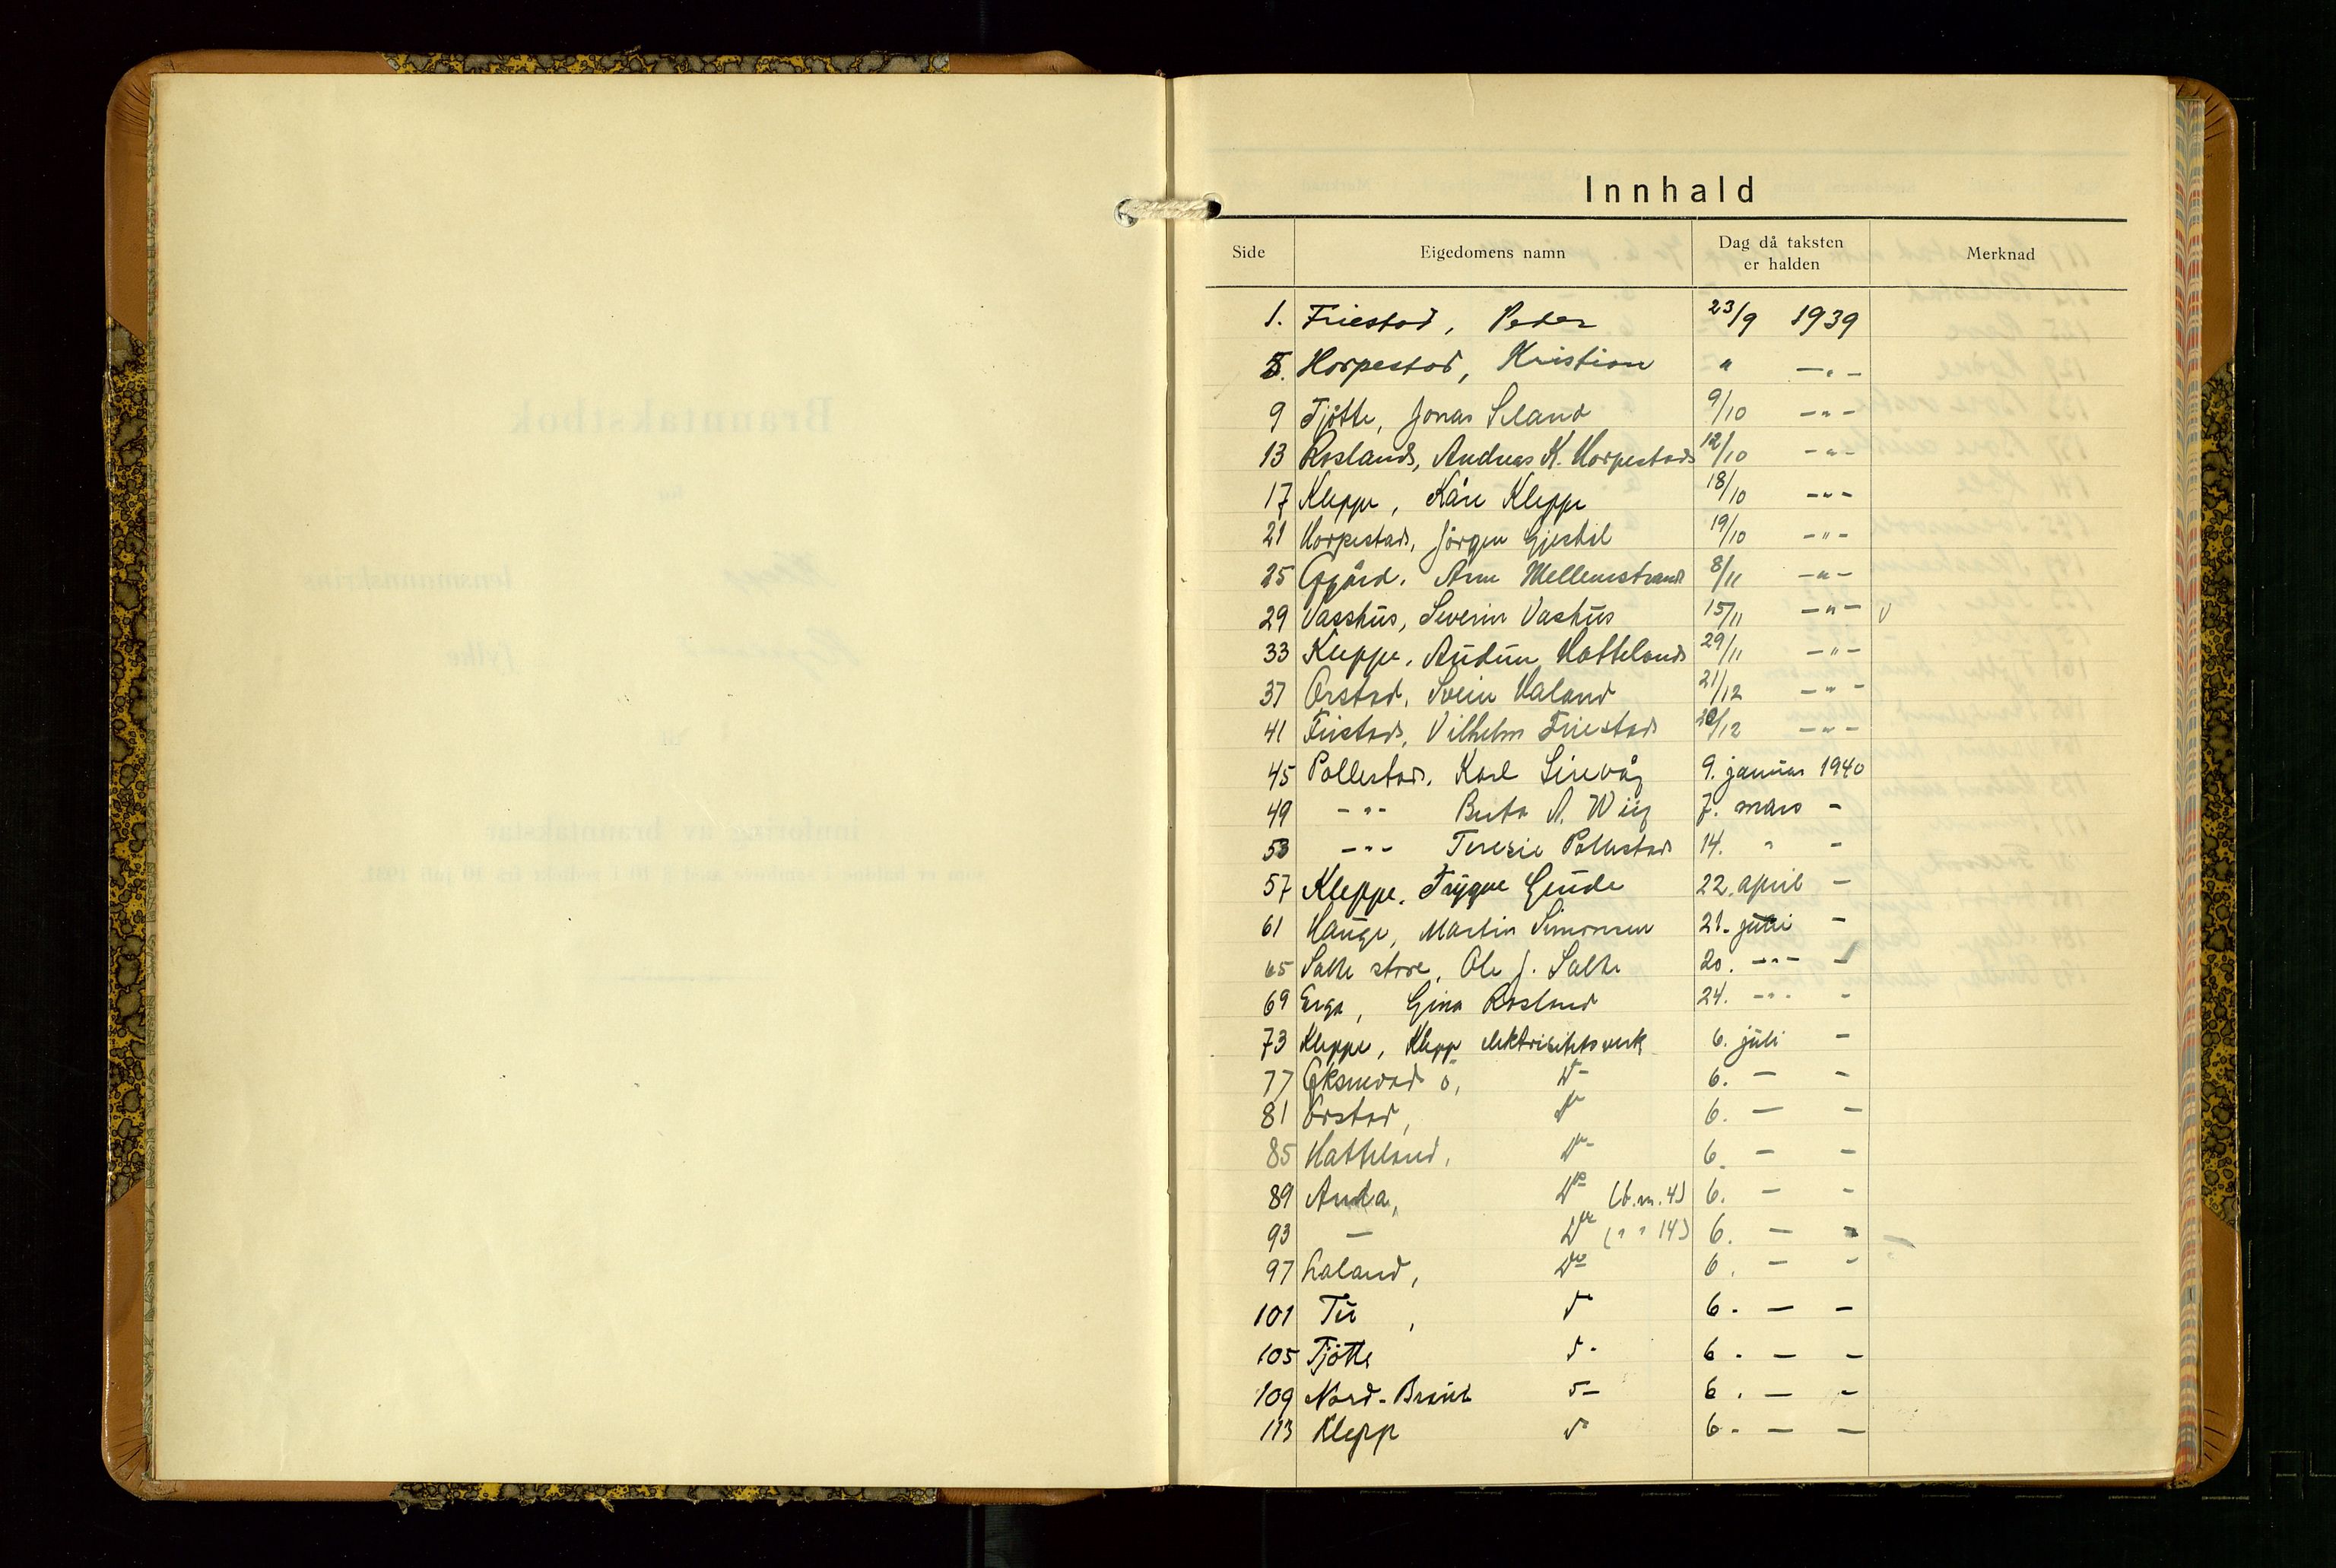 Innhald
Side Eigedomens namn Dag då taksten er halden Merknad
1. Friestad, Peder 23/9 1939
5. Horpestad, Kristian " -"-
9 Tjøtte, Jonas Seland 9/10 -"-
13 Rosland, Andreas K. Horpestad 12/10 -"-
17 Kleppe, Kåre Kleppe 18/10 -"-
21 Horpestad, Jörgen Gjestel 19/10 -"-
25 Øygård. Arne Mellemstrand 8/11 -"-
29 Vasshus, Severin Vashus 15/11 -"- v
33 Kleppe. Audun Hatteland 29/11 -"-
37 Orstad. Svein Haland 21/12 -"-
41 Fristad, Vilhelm Friestad /12 -"-
45 Pollestad. Karl Sirevåg 9. januar 1940
49 -"- Berta A. Wiig 7. mars -
53 -"- Teresie Pollestad 14. " -
57 Kleppe. Trygve Gude 22. april -
61 Hauge, Martin Simonsen 21. juni -
65 Salte store, Ole J. Salte 20. -"- -
69 Erga, Gina Rosland 24. -"- -
73 Kleppe, Klepp elektrisitetsverk 6. juli -
77 Øksnevad ö, Do 6. - -
81 Orstad, Do 6. - -
85 Hatteland, Do 6. - -
89 Anda, Do (b.n. 4) 6. - -
93 - Do (" " 14) 6. - -
97 Laland, Do 6. - -
101 Tu , do 6. - -
105 Tjøtte do 6. - -
109 Nord-Braut do 6. - -
113 Klepp do 6. - -